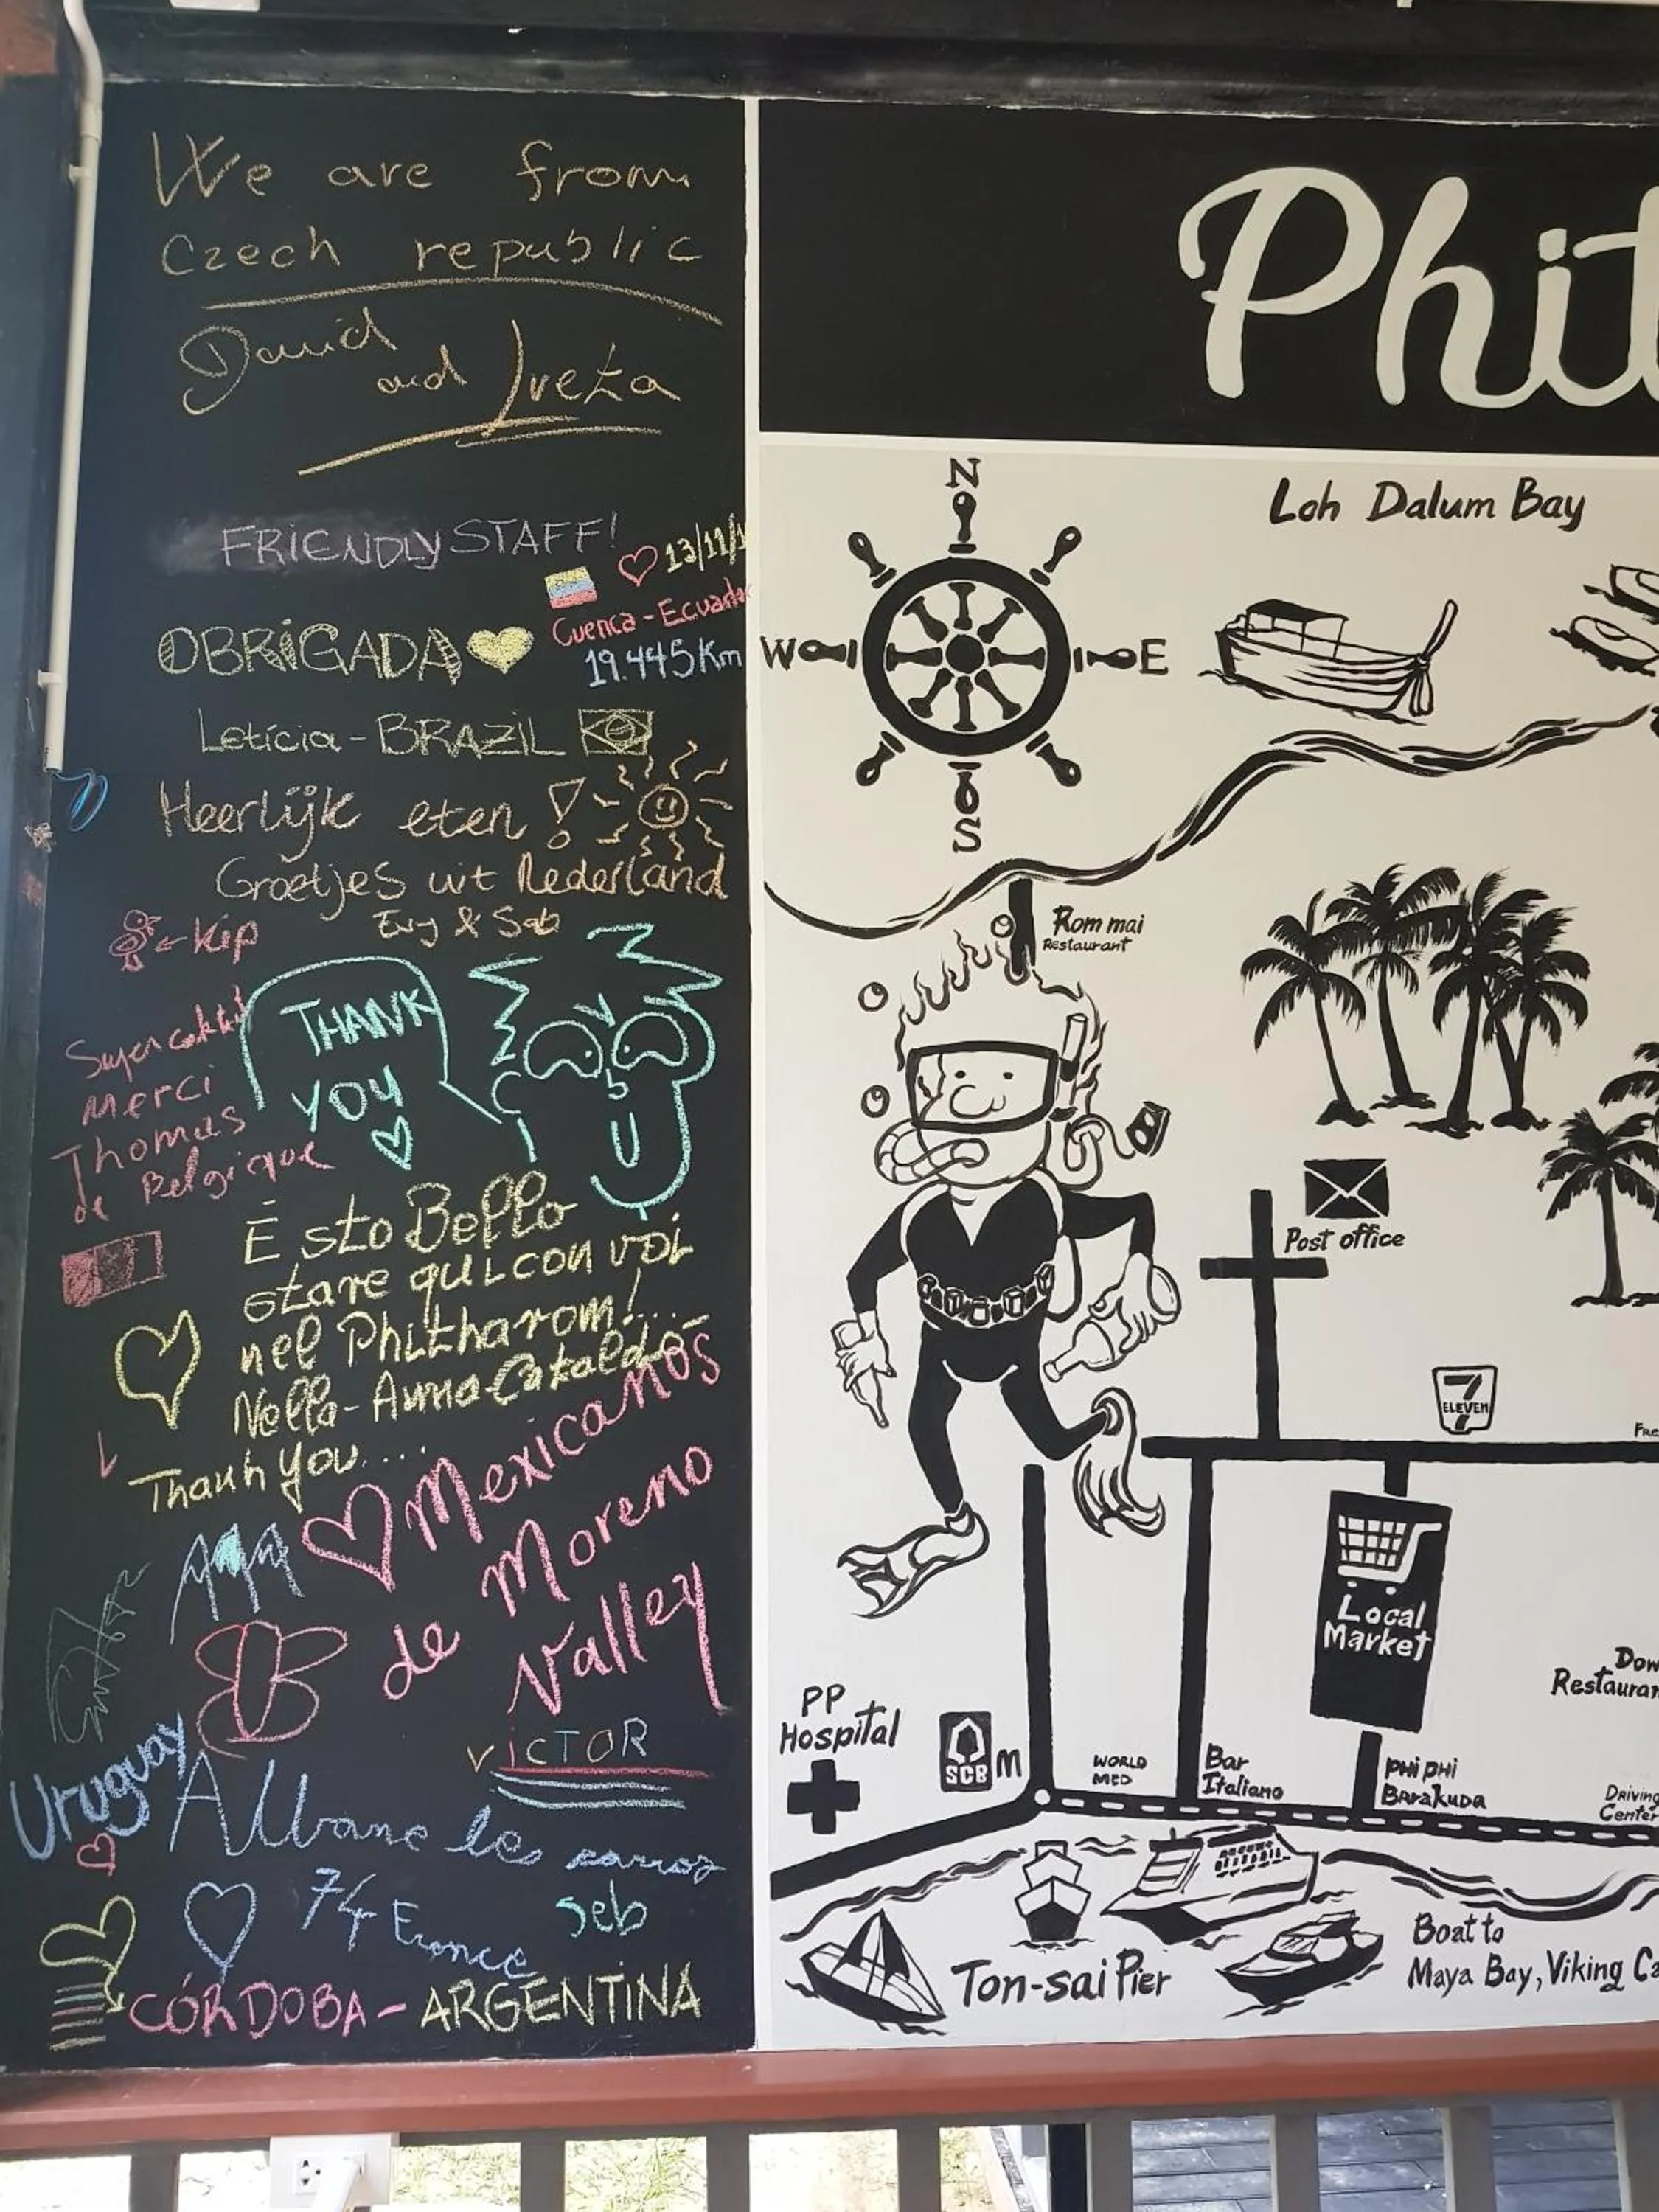 We are from
Czech republic
David
and Iveta
FRiENDLY STAFF!
13/11/1
Cuenca - Ecuador
19.445 Km
OBRiGADA
Letícia - BRAZIL
Heerlijk eten !
Groetjes uit Nederland
Evy & Seb
← Kip
THANK
YOU
Super
Merci
Thomas
de Belgique
È sto Bello
stare qui con voi
nel Phitharom!...
Nella - Anna - Cataldo
Thank you...
Mexicanos
de Moreno
Valley
ViCTOR
Uruguay
Albane le
74 France
seb
CÓRDOBA - ARGENTINA
Phit
N
W
E
S
Loh Dalum Bay
Rom mai
Restaurant
Post office
7
ELEVEN
Fre
Local
Market
Dow
Restauran
PP
Hospital
SCB
m
WORLD
MED
Bar
Italiano
PHi PHi
BArakuDA
Driving
Center
Ton-sai Pier
Boat to
Maya Bay, Viking Ca